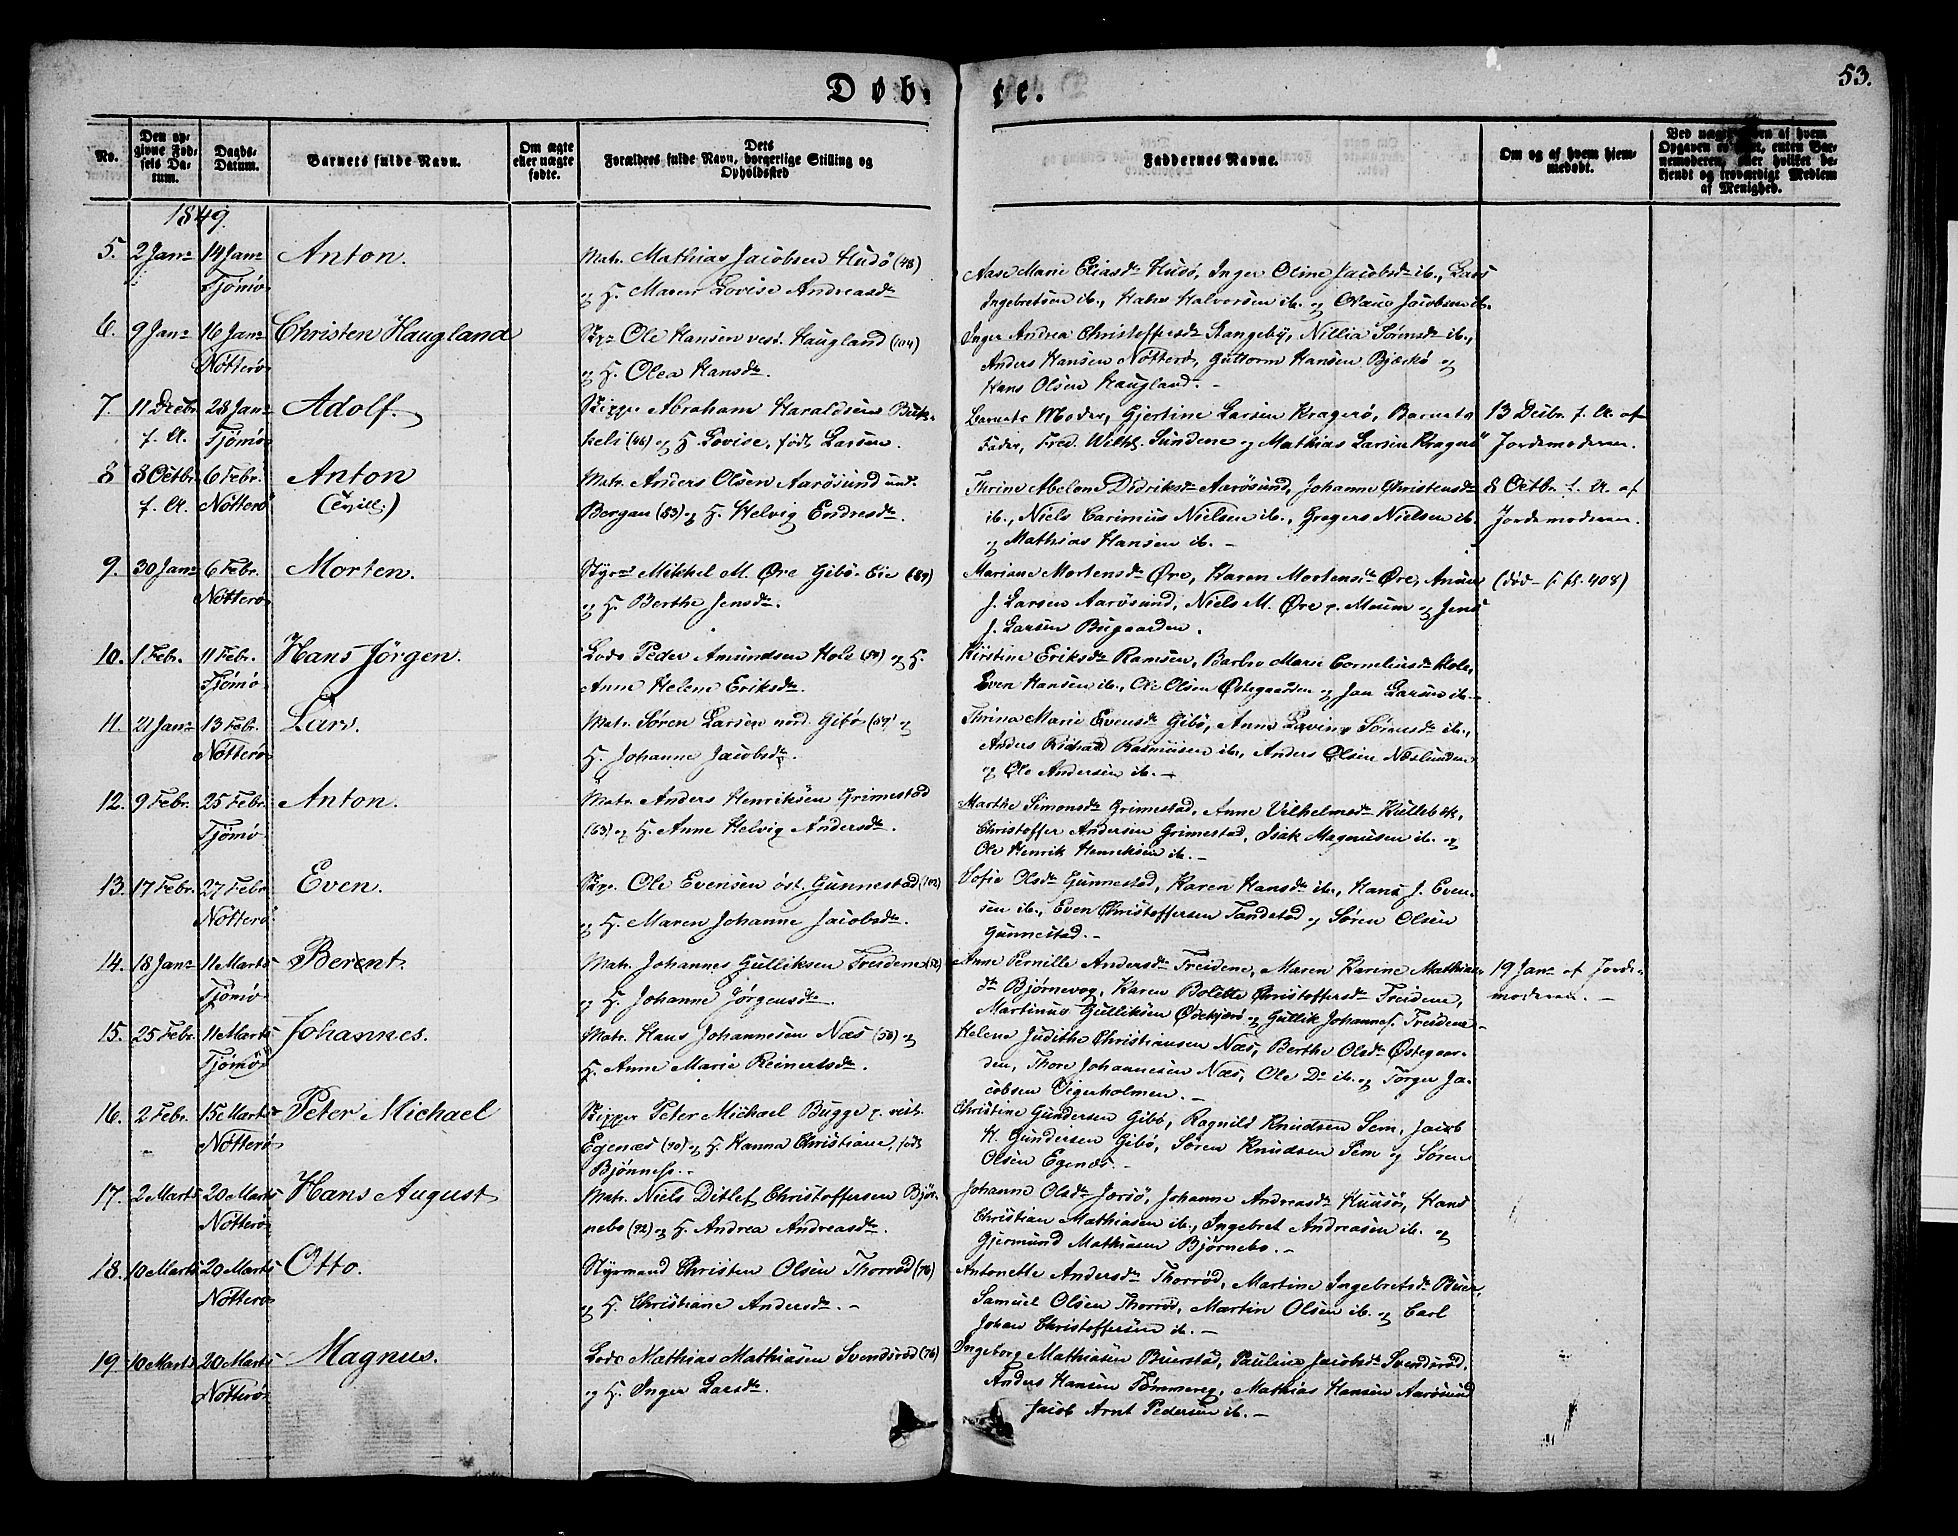 53.
Døb- te.
No.
Den opgivne Fødsels Datum.
Daabs-Datum.
Barnets fulde Navn.
Om ægte eller uægte fødte.
Dets Forældres fulde Navn, borgerlige Stilling og Opholdssted
Faddernes Navne.
Om og af hvem hjemmedøbt.
1849.
5. 2 Jan. 14 Jan. Anton. Matr. Mathias Jacobsen Hudø (48)
Tjømø og H. Maren Lovise Andreasd.
Aase Marie Eliasd. Hudø, Inger Oline Jacobsd. ib., Lars
Ingebretsen ib., Hans Halvorsen ib. og Olaus Jacobsen ib.
6. 9 Jan. 16 Jan. Christen Haugland Ole Hansen vest. Haugland (104)
Nøtterø og H. Olea Hansd.
Inger Andrea Christoffersd. Stangeby, Nillia Sørensd. ib.,
Anders Hansen Nøtterø, Guttorm Hansen Bjerkø og
Hans Olsen Haugland. -
7. 11 Decbr. 28 Jan. Adolf. Skipper Abraham Haraldsen Buk-
f. A. Tjømø kels (46) og H. Lovise, født Larsen.
Barnets Moder, Gjertine Larsen Kragerø, Barnets
Fader, Fred. Wilh. Sundene og Mathias Larsen Kragerø
13 Decbr. f. A. af
Jordemoderen.
8 8 Octbr. 6 Febr. Anton Matr. Anders Olsen Aarøsund und.
f. A. Nøtterø (Tvill:) Bergan (83) og H. Helvig Endresd.
Thrine Abelone Didriksd. Aarøsund, Johanne Christensd.
ib., Niels Carinius Nielsen ib., Gregers Nielsen ib.
og Mathias Hansen ib. -
8 Octbr. f. A. af
Jordemoderen.
9. 30 Jan. 6 Febr. Morten. Styrm. Mikkel M. Øre Gibø-Eie (89)
Nøtterø og H. Berthe Jensd.
Mariane Mortensd. Øre, Karen Mortensd. Øre,
J. Larsen Aarøsund, Niels M. Øre p. Meum og Jens
J. Larsen Bugaarden.
(død - f. pl. 408)
10. 1 Febr. 11 Febr. Hans Jørgen. Lods Peder Amundsen Hole (59) og H.
Tjømø Anne Helene Eriksd.
Kirstine Eriksd. Ramsen, Barbro Marie Corneliusd. Hole,
Even Hansen ib., Ole Olsen Østegaarden og Jan Larsen ib. -
11. 21 Jan. 13 Febr. Lars. Matr. Søren Larsen nord. Gibø (87) og
Nøtterø H. Johanne Jacobsd.
Thrina Marie Evensd. Gibø, Anne Lavine Sørensd. ib.,
Anders Richard Rasmusen ib., Anders Olsen Næslunden
og Ole Andersen ib. -
12. 9 Febr. 25 Febr. Anton. Matr. Anders Henriksen Grimestad
Tjømø (63) og H. Anne Helvig Andersd.
Marthe Simonsd. Grimestad, Anne Vilhelmsd. Kullebek,
Christoffer Andersen Grimestad, Isak Magnusen ib. og
Ole Henrik Henriksen ib. -
13. 17 Febr. 27 Febr. Even. Ole Evensen øst. Gunnestad (102)
Nøtterø og H. Maren Johanne Jacobsd.
Sofie Olsd. Gunnestad, Karen Hansd. ib., Hans J. Even-
sen ib., Even Christoffersen Tandstad og Søren Olsen
Gunnestad. -
14. 18 Jan. 11 Marts Berent. Matr. Johannes Gulliksen Treidene (52)
Tjømø og H. Johanne Jørgensd.
Anne Pernille Andersd. Treidene, Maren Karine Mathias-
d. Bjørnevog, Karen Bolette Christoffersd. Treidene,
Martinus Gulliksen Ødekjære og Gullik Johannes. Treidene -
19 Jan. af Jorde-
moderen. -
15. 25 Febr. 11 Marts Johannes. Matr. Hans Johannesen Næs (56) og
Tjømø H. Anne Marie Reinertsd.
Helene Judithe Christiansen Næs, Berthe Olsd. Østegaar-
den, Thore Johannesen Næs, Ole D. ib. og Torger Ja-
cobsen Vigerholmen. -
16. 2 Febr. 15 Marts Peter Michael Skipper Peter Michael Bugge p. vest.
Nøtterø Egenæs (90) og H. Hanna Christiane, født
Bjønness.
Christine Gundersen Gibø, Ragnild Knudsen Sem, Jacob
H. Gundersen Gibø, Søren Knudsen Sem og Søren
Olsen Egenæs. -
17. 2 Marts 20 Marts Hans August Matr. Niels Ditlef Christoffersen Bjør-
Nøtterø nebo (92) og H. Andrea Andreasd.
Johanne Olsd. Jersø, Johanne Andreasd. Knusø, Hans
Christian Mathiasen ib., Ingebret Andreasen ib. og
Gjermund Mathiasen Bjørnebo. -
18. 10 Marts 20 Marts Otto. Styrmand Christen Olsen Thorrød (76)
Nøtterø og H. Christiane Andersd. -
Antonette Andersd. Thorrød, Martine Ingebretsd. Buer,
Samuel Olsen Thorrød, Martin Olsen ib. og Carl
Johan Christoffersen ib. -
19 10 Marts 20 Marts Magnus. Lods Mathias Mathiasen Svendsrød (76)
Nøtterø og H. Inger Larsd.
Ingeborg Mathiasen Buerstad, Pauline Jacobsd. Svendsrød,
Anders Hansen Tømmereg, Mathias Hansen Aarøsund
Jacob Arnt Pedersen ib. -